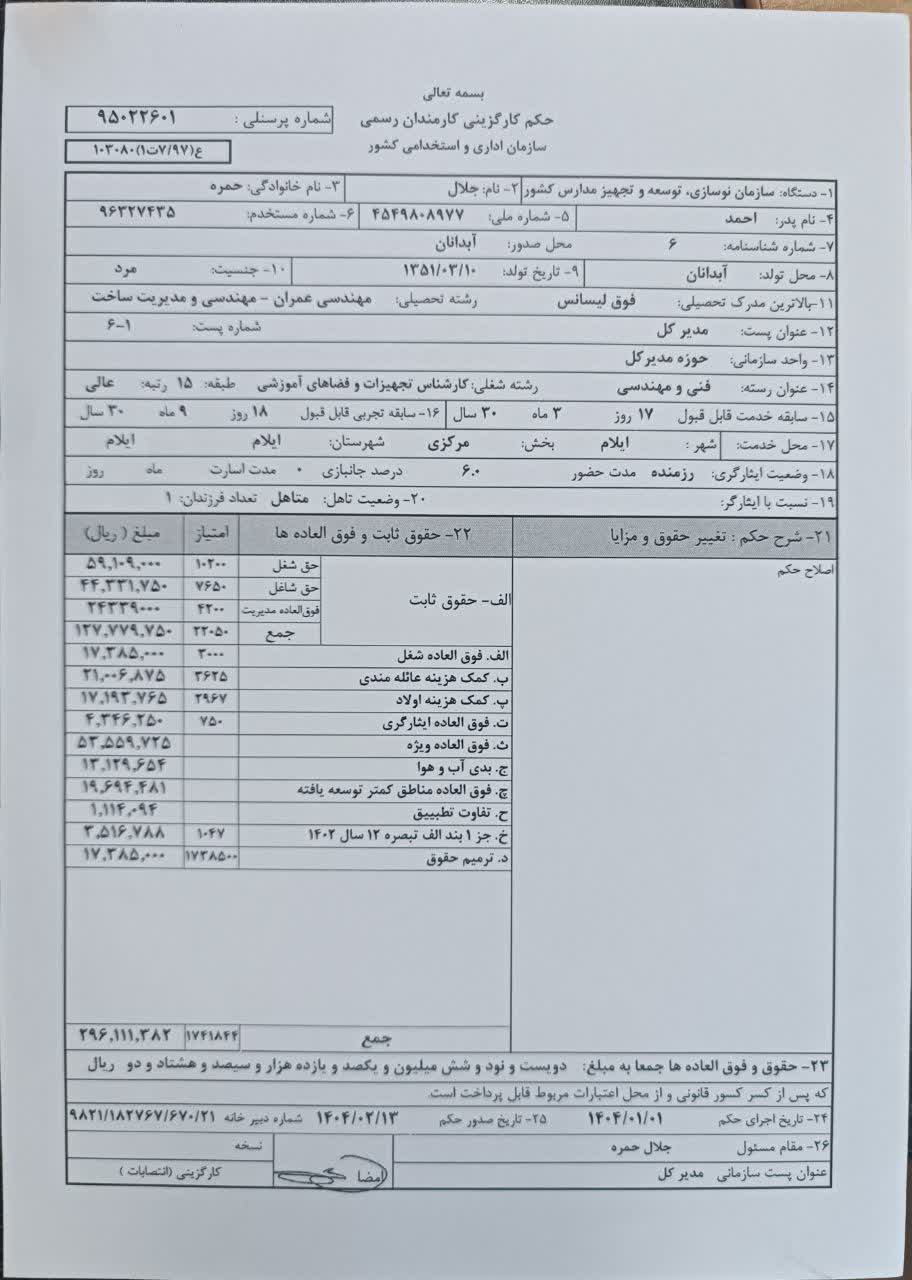 بسمه تعالی
حکم کارگزینی کارمندان رسمی
شماره پرسنلی : ۹۵۰۲۲۶۰۱
سازمان اداری و استخدامی کشور
ع(۷/۹۷ت۱)۱۰۳۰۸۰
۱- دستگاه: سازمان نوسازی، توسعه و تجهیز مدارس کشور ۲- نام: جلال ۳- نام خانوادگی: حمره
۴- نام پدر: احمد ۵- شماره ملی: ۴۵۴۹۸۰۸۹۷۷ ۶- شماره مستخدم: ۹۶۳۲۷۴۳۵
۷- شماره شناسنامه: ۶ محل صدور: آبدانان
۸- محل تولد: آبدانان ۹- تاریخ تولد: ۱۳۵۱/۰۳/۱۰ ۱۰- جنسیت: مرد
۱۱-بالاترین مدرک تحصیلی: فوق لیسانس رشته تحصیلی: مهندسی عمران - مهندسی و مدیریت ساخت
۱۲- عنوان پست: مدیر کل شماره پست: ۶-۱
۱۳- واحد سازمانی: حوزه مدیرکل
۱۴- عنوان رسته: فنی و مهندسی رشته شغلی: کارشناس تجهیزات و فضاهای آموزشی طبقه: ۱۵ رتبه: عالی
۱۵- سابقه خدمت قابل قبول ۱۷ روز ۳ ماه ۳۰ سال ۱۶- سابقه تجربی قابل قبول ۱۸ روز ۹ ماه ۳۰ سال
۱۷- محل خدمت: شهر : ایلام بخش: مرکزی شهرستان: ایلام ایلام
۱۸- وضعیت ایثارگری: رزمنده مدت حضور ۶.۰ درصد جانبازی ۰ مدت اسارت ماه روز
۱۹- نسبت با ایثارگر: ۲۰- وضعیت تاهل: متاهل تعداد فرزندان: ۱
۲۱- شرح حکم : تغییر حقوق و مزایا ۲۲- حقوق ثابت و فوق العاده ها امتیاز مبلغ ( ریال)
اصلاح حکم
الف- حقوق ثابت
حق شغل ۱۰۲۰۰ ۵۹,۱۰۹,۰۰۰
حق شاغل ۷۶۵۰ ۴۴,۳۳۱,۷۵۰
فوق‌العاده مدیریت ۴۲۰۰ ۲۴۳۳۹۰۰۰
جمع ۲۲۰۵۰ ۱۲۷,۷۷۹,۷۵۰
الف. فوق العاده شغل ۳۰۰۰ ۱۷,۳۸۵,۰۰۰
ب. کمک هزینه عائله مندی ۳۶۲۵ ۲۱,۰۰۶,۸۷۵
پ. کمک هزینه اولاد ۲۹۶۷ ۱۷,۱۹۳,۷۶۵
ت. فوق العاده ایثارگری ۷۵۰ ۴,۳۴۶,۲۵۰
ث. فوق العاده ویژه ۵۳,۵۵۹,۷۲۵
ج. بدی آب و هوا ۱۳,۱۲۹,۶۵۴
چ. فوق العاده مناطق کمتر توسعه یافته ۱۹,۶۹۴,۴۸۱
ح. تفاوت تطبییق ۱,۱۱۴,۰۹۴
خ. جز ۱ بند الف تبصره ۱۲ سال ۱۴۰۲ ۱۰۴۷ ۳,۵۱۶,۷۸۸
د. ترمیم حقوق ۱۷۳۸۵۰۰ ۱۷,۳۸۵,۰۰۰
جمع ۱۷۴۱۸۴۴ ۲۹۶,۱۱۱,۳۸۲
۲۳- حقوق و فوق العاده ها جمعا به مبلغ: دویست و نود و شش میلیون و یکصد و یازده هزار و سیصد و هشتاد و دو ریال
که پس از کسر کسور قانونی و از محل اعتبارات مربوط قابل پرداخت است.
۲۴- تاریخ اجرای حکم ۱۴۰۴/۰۱/۰۱ ۲۵- تاریخ صدور حکم ۱۴۰۴/۰۲/۱۳ شماره دبیر خانه ۹۸۲۱/۱۸۲۷۶۷/۶۷۰/۲۱
۲۶- مقام مسئول جلال حمره نسخه
عنوان پست سازمانی مدیر کل امضا کارگزینی (انتصابات )